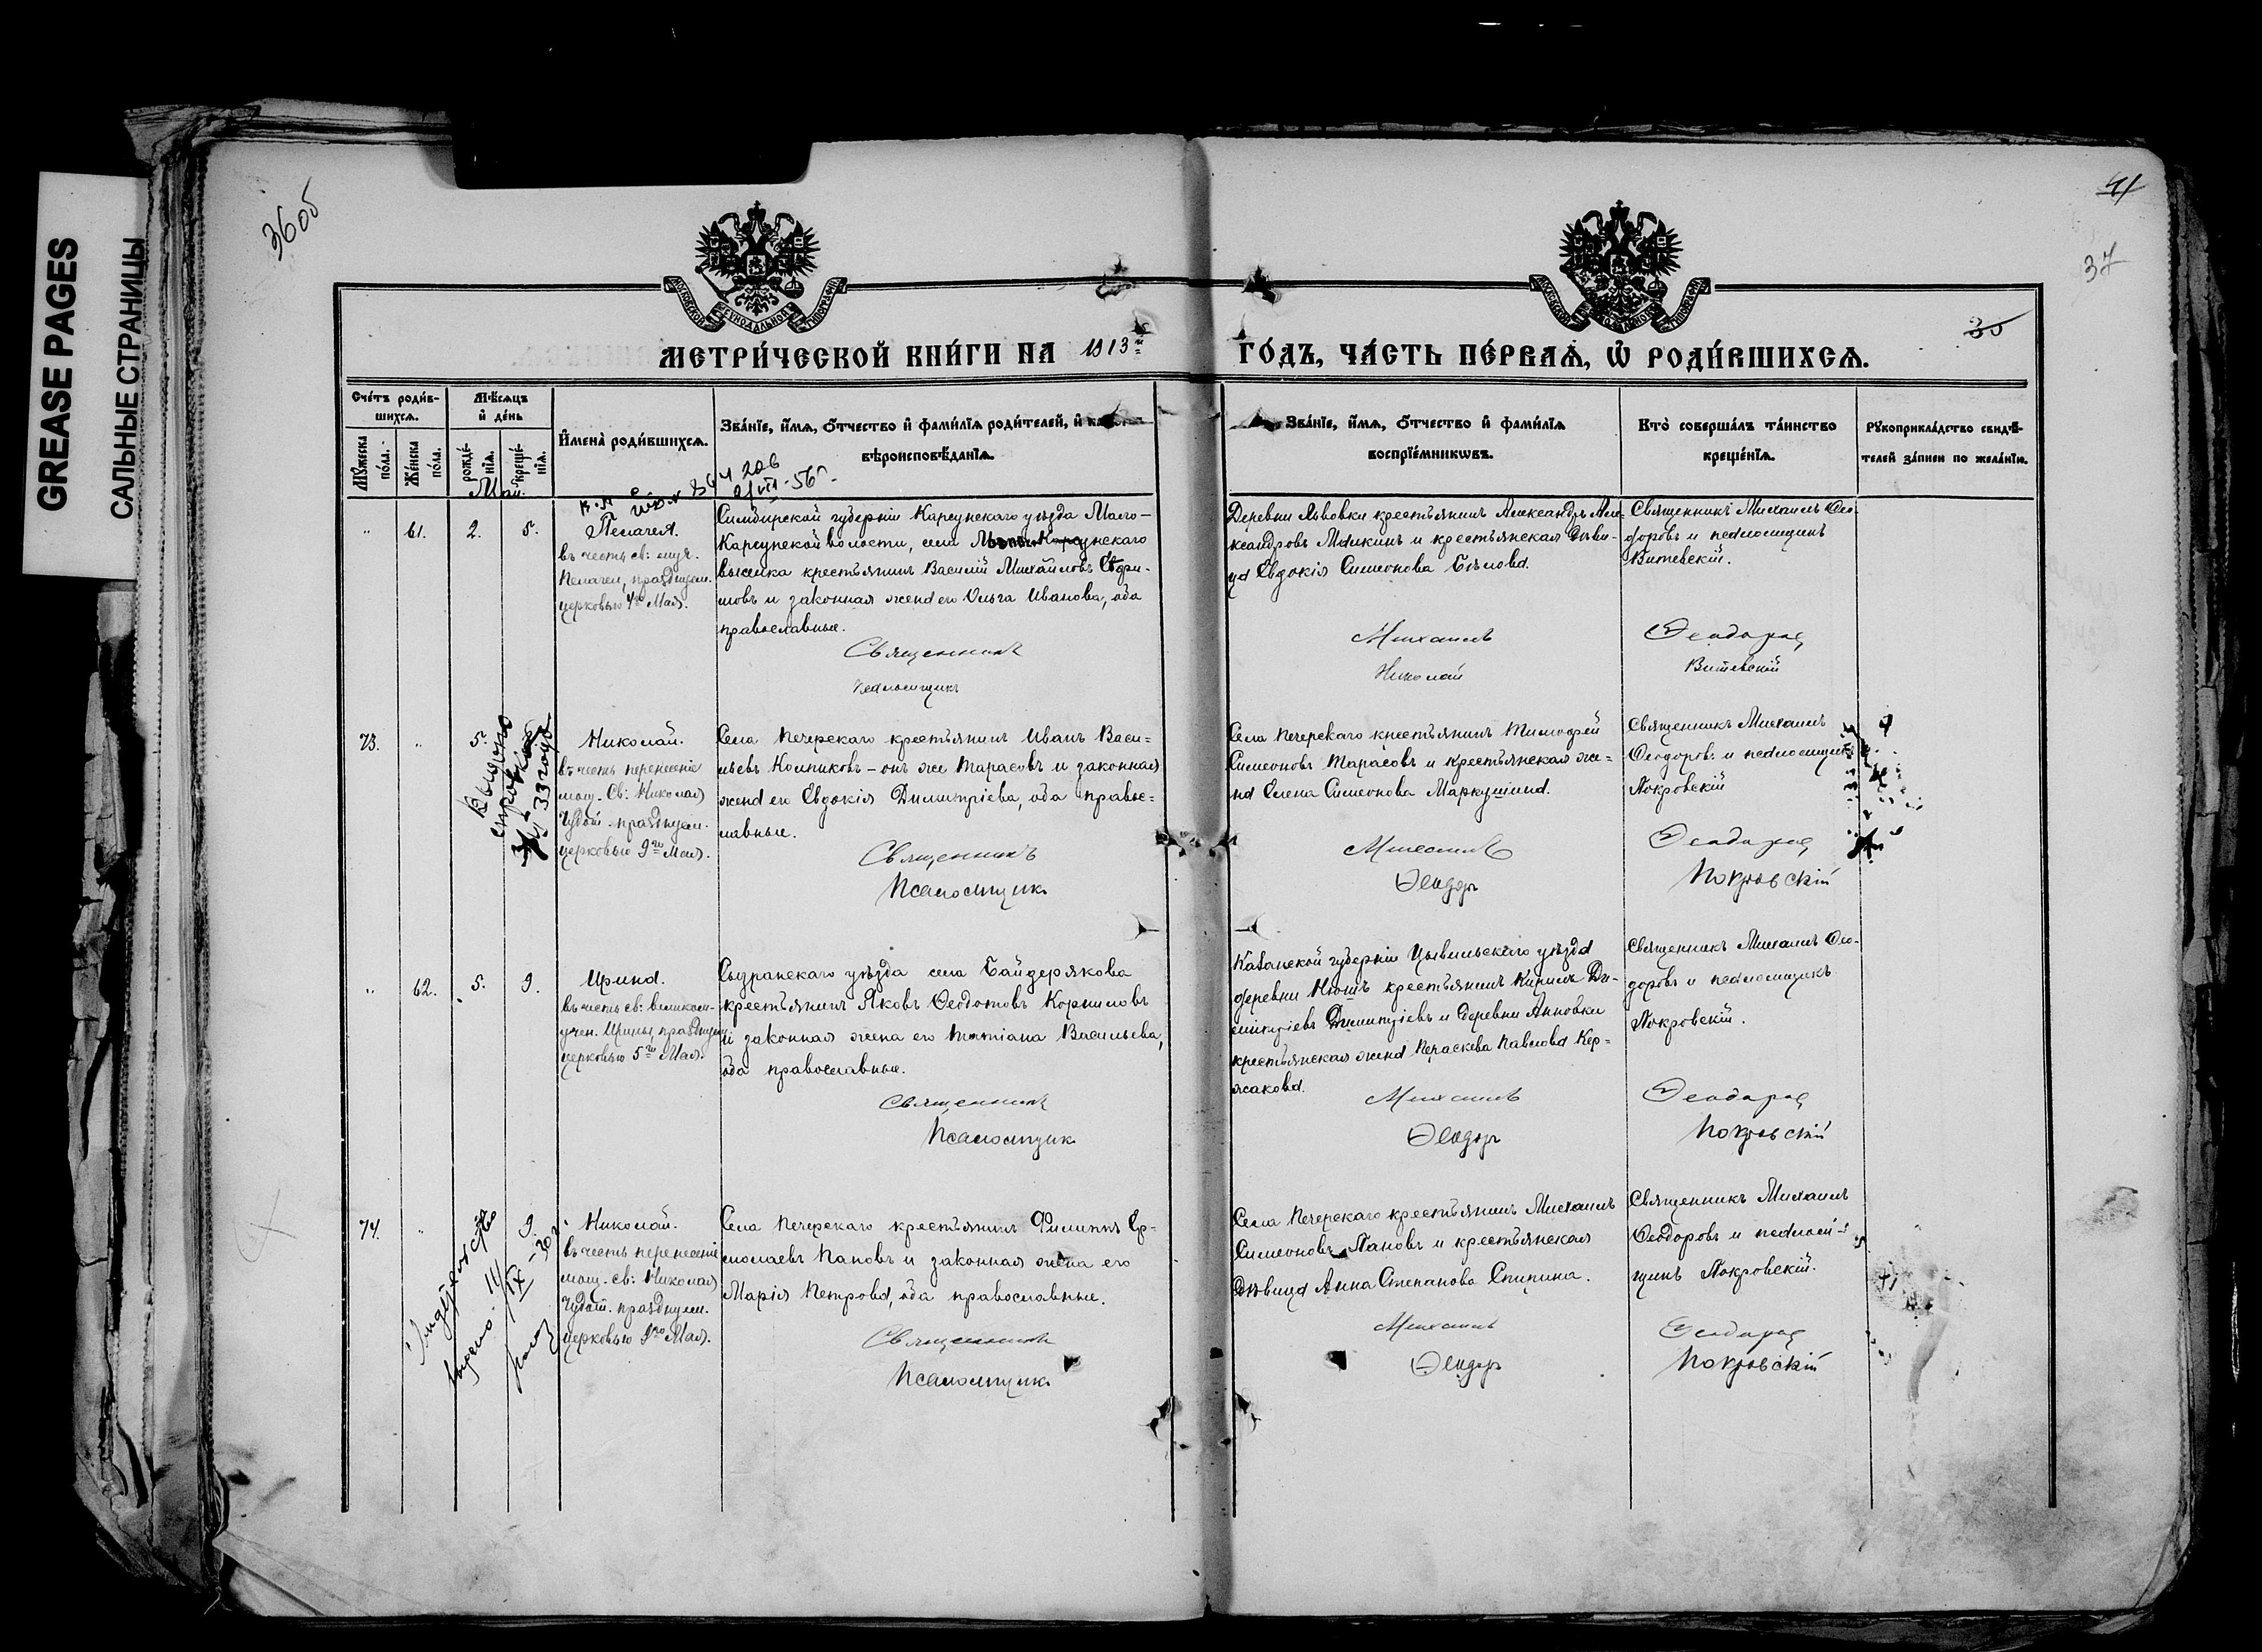 GREASE PAGES
САЛЬНЫЕ СТРАНИЦЫ
36об
41
37
35
МЕТРИ́ЧЕСКОЙ КНИ́ГИ НА 1913 й
ГО́ДЪ, ЧА́СТЬ ПЕ́РВАѦ, Ѡ҆ РОДИ́ВШИХСѦ.
Сче́тъ роди́в-
шихсѧ.
Мꙋ́жеска по́ла.
Же́нска по́ла.
Мѣ́сѧцъ
и҆ де́нь
рожде́-
нїѧ.
креще́-
нїѧ.
И҆мена̀ роди́вшихсѧ.
Зва́нїе, и҆́мѧ, ѻ҆́тчество и҆ фами́лїѧ роди́телей, и҆
вѣроисповѣ́данїѧ.
Зва́нїе, и҆́мѧ, ѻ҆́тчество и҆ фами́лїѧ
воспрїе́мникѡвъ.
Кто̀ соверша́лъ та́инство
креще́нїѧ.
Рꙋкоприкла́дство свидѣ́-
телей за́писи по жела́нїю.
Май.
21/VII-56г.
61. 2. 5.
Пелагея.
въ честь св: муч.
Пелагеи, празднуем.
церковью 4го Мая.
Симбирской губерніи Карсунскаго уѣзда Мало-
Карсунской волости, села Мало-Карсунскаго
выселка крестьянинъ Василій Михайловъ Ефи-
мовъ и законная жена его Ольга Иванова, оба
православные.
Священникъ
псаломщикъ
Деревни Львовки крестьянинъ Александръ Але-
ксандровъ и крестьянская дѣви-
ца Евдокія Симеонова Бѣлова.
Михаилъ
Николай
Священникъ Михаилъ Ѳео-
доровъ и псаломщикъ
Витевскій.
Ѳеодоровъ
Витевскій
73. 5.
33 года
Николай.
въ честь перенесенія
мощ. Св: Николая
Чудот. празднуем.
церковью 9го Мая.
Села Печерскаго крестьянинъ Иванъ Васи-
льевъ Колпиковъ - онъ же Тарасовъ и законная
жена его Евдокія Димитріева, оба правос-
лавные.
Священникъ
Псаломщикъ
Села Печерскаго крестьянинъ Тимофей
Симеоновъ Тарасовъ и крестьянская же-
на Елена Симеонова Маркушина.
Михаилъ
Ѳеодоръ
Священникъ Михаилъ
Ѳеодоров: и псаломщикъ
Покровскій
Ѳеодоровъ
Покровскій
62. 5. 9.
Ирина.
въ честь св: великом-
учен. Ирины, празднуем
церковью 5го Мая.
Сызранскаго уѣзда села Байдерякова
крестьянинъ Яковъ Ѳеодотовъ Корниловъ
и законная жена его Татіана Васильева,
оба православные.
Священникъ
Псаломщикъ
Казанской губерніи Цывильскаго уѣзда
деревни крестьянинъ Кириллъ Ди-
митріевъ Димитріевъ и деревни Анновки
крестьянская жена Параскева Павлова Кер-
жакова.
Михаилъ
Ѳеодоръ
Священникъ Михаилъ Ѳео-
доровъ и псаломщикъ
Покровскій.
Ѳеодоровъ
Покровскій
74. 9.
Николай.
въ честь перенесенія
мощ. св: Николая
Чудот. празднуем.
церковью 9го Мая.
14/IX-30г.
Села Печерскаго крестьянинъ Филиппъ Ер-
молаевъ Пановъ и законная жена его
Марія Петрова, оба православные.
Священникъ
Псаломщикъ
Села Печерскаго крестьянинъ Михаилъ
Симеоновъ Пановъ и крестьянская
дѣвица Анна Степанова Спирина.
Михаилъ
Ѳеодоръ
Священникъ Михаилъ
Ѳеодоровъ и псалом-
щикъ Покровскій.
Ѳеодоровъ
Покровскій